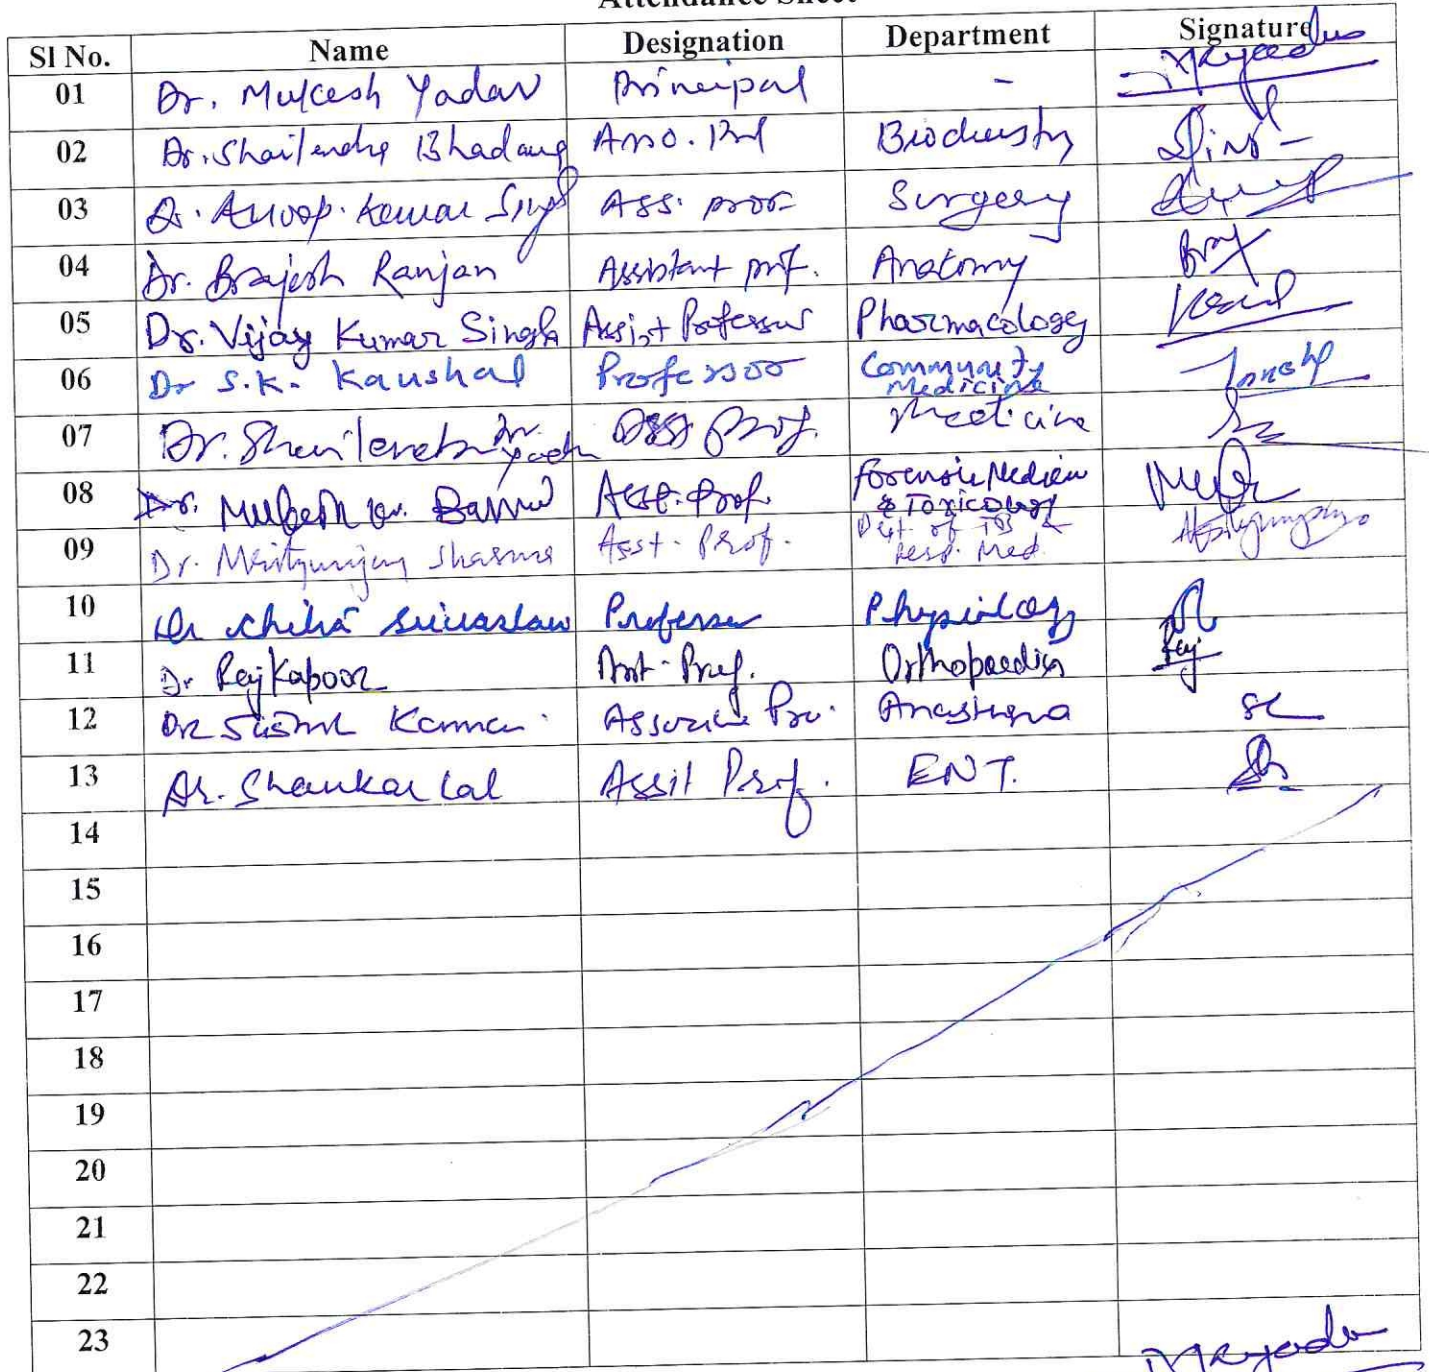 Attendance Sheet
Sl No. Name Designation Department Signature
01 Dr. Mukesh Yadav Principal -
02 Dr. Shailendra Asso. Prof Biochemistry
03 Dr. Anoop Kumar Singh Ass. prof Surgery
04 Dr. Brajesh Ranjan Assistant prof. Anatomy
05 Dr. Vijay Kumar Singh Assist Professor Pharmacology
06 Dr S.K. Kaushal Professor Community Medicine
07 Dr. Asst Prof. Medicine
08 Dr. Mukesh Kr. Asst. Prof. Forensic Medicine & Toxicology
09 Dr. Mrityunjay Sharma Asst. Prof. Dept of TB & Resp. Med.
10 Dr Chitra Srivastava Professor Physiology
11 Dr Raj Kapoor Asst. Prof. Orthopaedics Raj
12 Dr Associate Pro. SK
13 Dr. Shankar Lal Assit Prof. ENT.
14
15
16
17
18
19
20
21
22
23